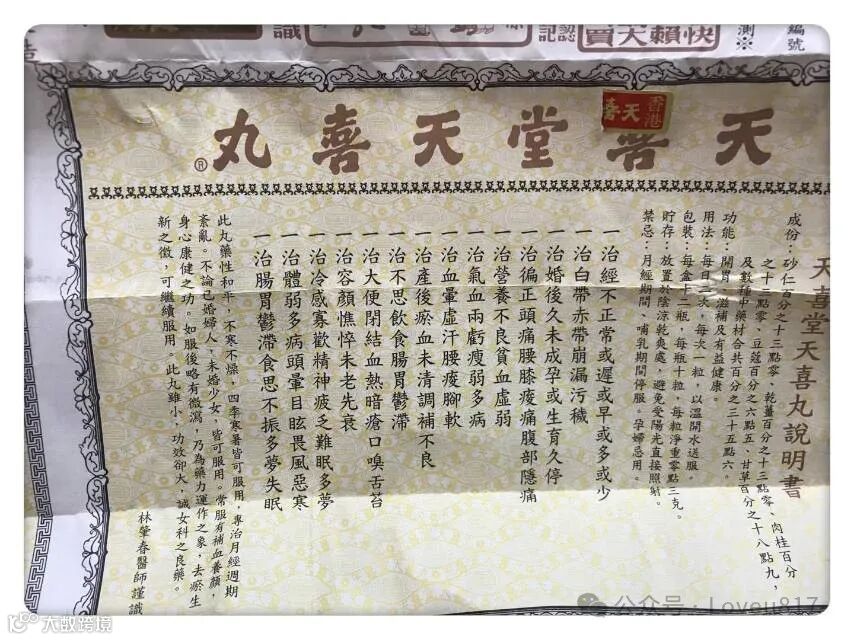 編號
測※
快賴天賈
認記
天喜堂天喜丸®
香港
天喜
天喜堂天喜丸說明書
成份：砂仁百分之十三點零、乾薑百分之十三點零、肉桂百分
之十三點零、豆蔻百分之六點五、甘草百分之十八點九，
及數種中藥材合共百分之三十五點六。
功能：開胃、滋補及有益健康。
用法：每日二次，每次一粒，以溫開水送服。
包裝：每盒十二瓶，每瓶十粒，每粒淨重零點三克。
貯存：放置於陰涼乾爽處，避免受陽光直接照射。
禁忌：月經期間、哺乳期間停服。孕婦忌用。
一治經不正常或遲或早或多或少
一治白帶赤帶崩漏污穢
一治婚後久未成孕或生育久停
一治徧正頭痛腰膝痠痛腹部隱痛
一治營養不良貧血虛弱
一治氣血兩虧瘦弱多病
一治血暈虛汗腰痠腳軟
一治產後瘀血未清調補不良
一治不思飲食腸胃鬱滯
一治大便閉結血熱暗瘡口嗅舌苔
一治容顏憔悴未老先衰
一治冷感寡歡精神疲乏難眠多夢
一治體弱多病頭暈目眩畏風惡寒
一治腸胃鬱滯食思不振多夢失眠
此丸藥性和平，不寒不燥，四季寒暑皆可服用，專治月經週期
紊亂。不論已婚婦人，未婚少女，皆可服用。常服有補血養顏，
身心康健之功。如服後略有微瀉，乃為藥力運作之象，去瘀生
新之徵，可繼續服用。此丸雖小，功效卻大，誠女科之良藥。
林肇春醫師謹識
公众号：Loveu817
大数跨境